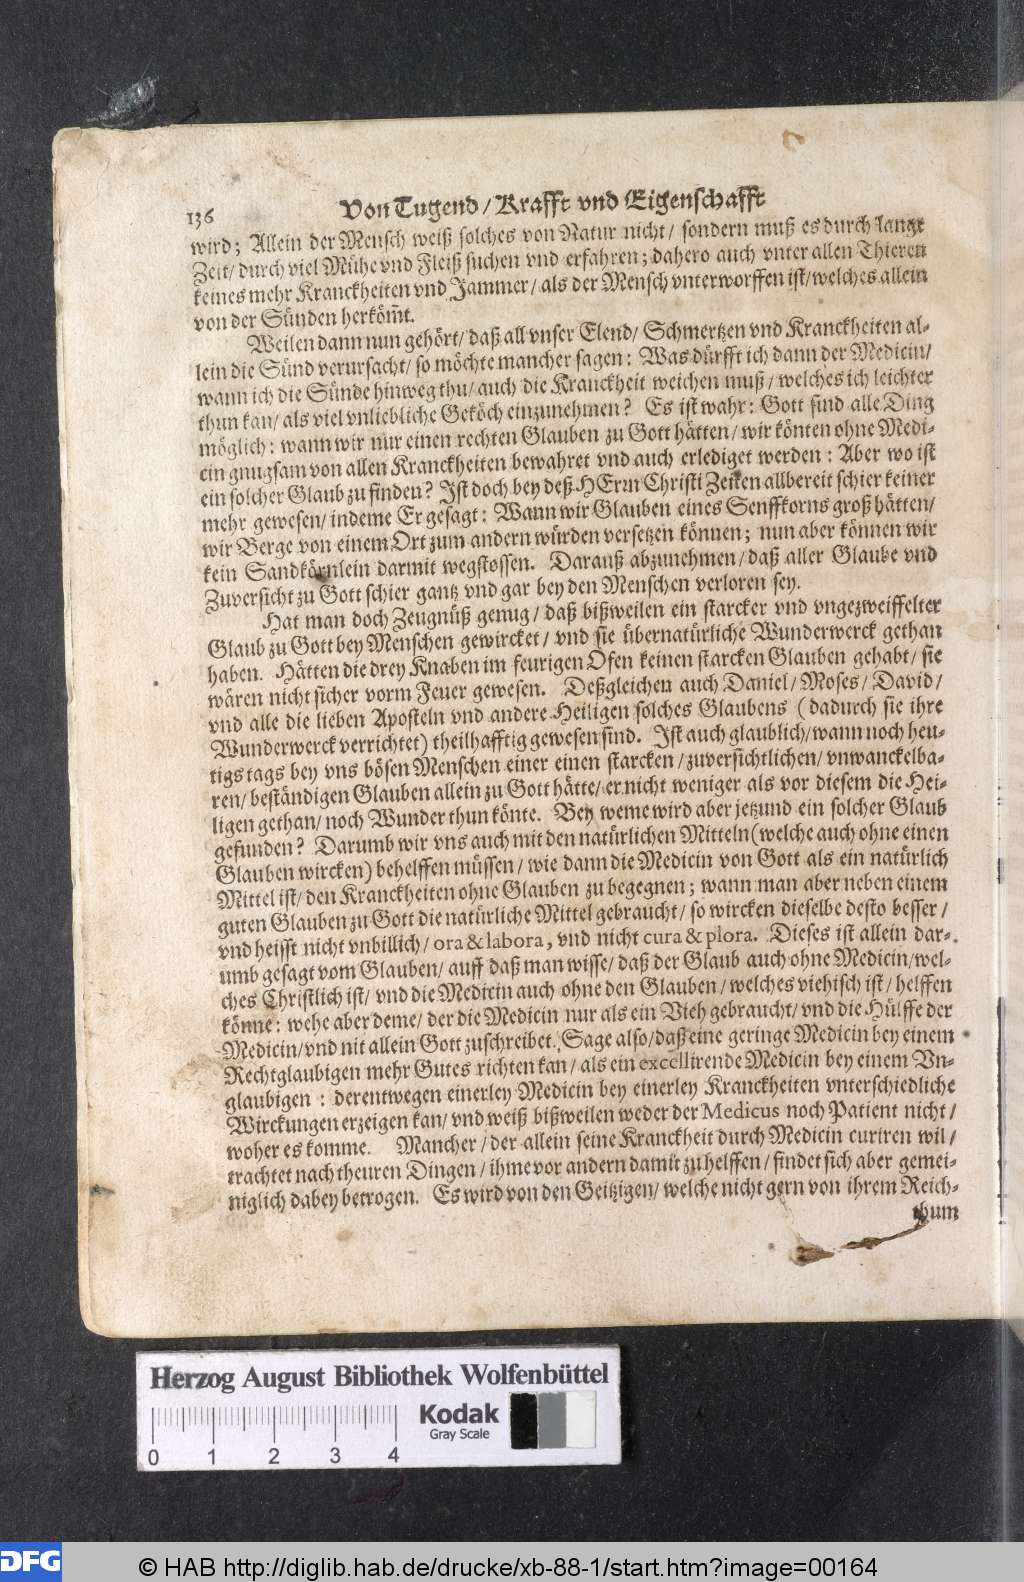 136 Von Tugend / Krafft vnd Eigenschafft
wird; Allein der Mensch weiß solches von Natur nicht / sondern muß es durch lange
Zeit / durch viel Mühe vnd Fleiß suchen vnd erfahren; dahero auch vnter allen Thieren
keines mehr Kranckheiten vnd Jammer / als der Mensch vnterworffen ist / welches allein
von der Sünden herköm̃t.
Weilen dann nun gehört / daß all vnser Elend / Schmertzen vnd Kranckheiten al-
lein die Sünd verursacht / so möchte mancher sagen: Was dürfft ich dann der Medicin /
wann ich die Sünde hinweg thu / auch die Kranckheit weichen muß / welches ich leichter
thun kan / als viel vnliebliche Geköch einzunehmen? Es ist wahr: Gott sind alle Ding
möglich: wann wir nur einen rechten Glauben zu Gott hätten / wir könten ohne Medi-
cin gnugsam von allen Kranckheiten bewahret vnd auch erlediget werden: Aber wo ist
ein solcher Glaub zu finden? Ist doch bey deß HErrn Christi Zeiten allbereit schier keiner
mehr gewesen / indeme Er gesagt: Wann wir Glauben eines Senffkorns groß hätten /
wir Berge von einem Ort zum andern würden versetzen können; nun aber können wir
kein Sandkörnlein darmit wegstossen. Darauß abzunehmen / daß aller Glaube vnd
Zuversicht zu Gott schier gantz vnd gar bey den Menschen verloren sey.
Hat man doch Zeugnüß genug / daß bißweilen ein starcker vnd vngezweiffelter
Glaub zu Gott bey Menschen gewircket / vnd sie übernatürliche Wunderwerck gethan
haben. Hätten die drey Knaben im feurigen Ofen keinen starcken Glauben gehabt / sie
wären nicht sicher vorm Feuer gewesen. Deßgleichen auch Daniel / Moses / David /
vnd alle die lieben Aposteln vnd andere Heiligen solches Glaubens (dadurch sie ihre
Wunderwerck verrichtet) theilhafftig gewesen sind. Ist auch glaublich / wann noch heu-
tigs tags bey vns bösen Menschen einer einen starcken / zuversichtlichen / vnwanckelba-
ren / beständigen Glauben allein zu Gott hätte / er nicht weniger als vor diesem die Hei-
ligen gethan / noch Wunder thun könte. Bey weme wird aber jetzund ein solcher Glaub
gefunden? Darumb wir vns auch mit den natürlichen Mitteln (welche auch ohne einen
Glauben wircken) behelffen müssen / wie dann die Medicin von Gott als ein natürlich
Mittel ist / den Kranckheiten ohne Glauben zu begegnen; wann man aber neben einem
guten Glauben zu Gott die natürliche Mittel gebraucht / so wircken dieselbe desto besser /
vnd heisst nicht vnbillich / ora & labora, vnd nicht cura & plora. Dieses ist allein dar-
umb gesagt vom Glauben / auff daß man wisse / daß der Glaub auch ohne Medicin / wel-
ches Christlich ist / vnd die Medicin auch ohne den Glauben / welches viehisch ist / helffen
könne: wehe aber deme / der die Medicin nur als ein Vieh gebraucht / vnd die Hülffe der
Medicin / vnd nit allein Gott zuschreibet. Sage also / daß eine geringe Medicin bey einem
Rechtglaubigen mehr Gutes richten kan / als ein excellirende Medicin bey einem Vn-
glaubigen: derentwegen einerley Medicin bey einerley Kranckheiten vnterschiedliche
Wirckungen erzeigen kan / vnd weiß bißweilen weder der Medicus noch Patient nicht /
woher es komme. Mancher / der allein seine Kranckheit durch Medicin curiren wil /
trachtet nach theuren Dingen / ihme vor andern damit zu helffen / findet sich aber gemei-
niglich dabey betrogen. Es wird von den Geitzigen / welche nicht gern von ihrem Reich-
thum
Herzog August Bibliothek Wolfenbüttel
Kodak
Gray Scale
0 1 2 3 4
DFG
© HAB http://diglib.hab.de/drucke/xb-88-1/start.htm?image=00164